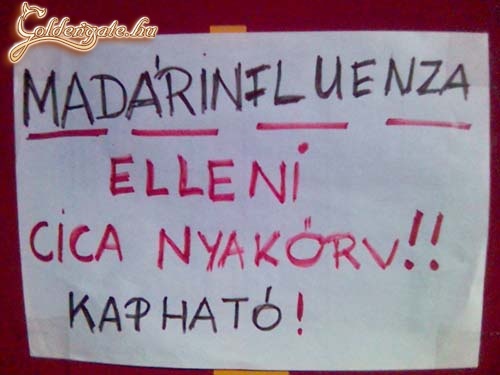 Goldengate.hu
MADÁRINFLUENZA
ELLENI
CICA NYAKÖRV!!
KAPHATÓ!